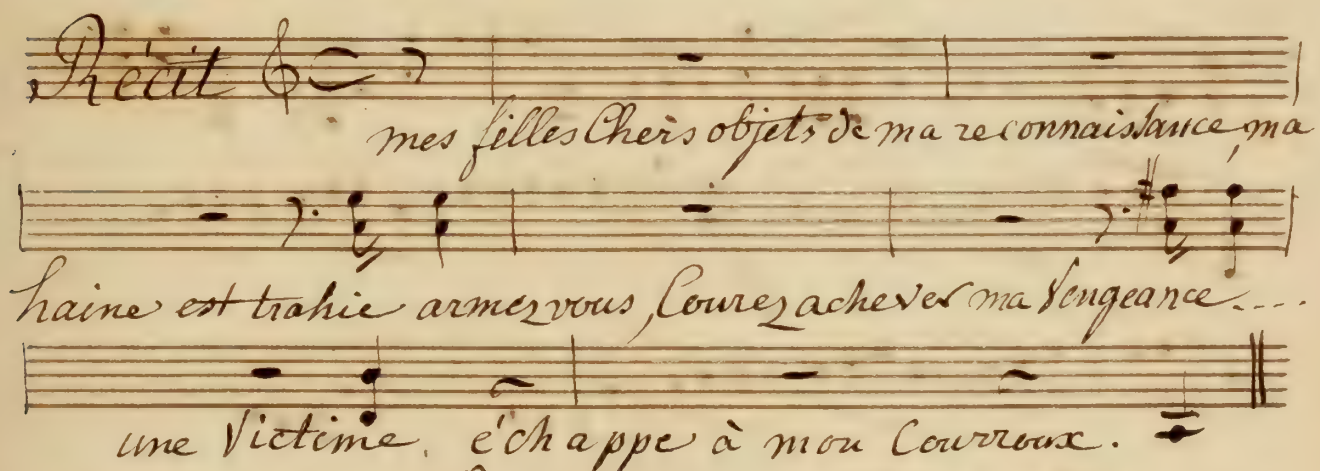 Récit
mes filles Chers objets de ma reconnaissance, ma
haine est trahie armez vous, Courez achever ma Vengeance....
une Victime. échappe à mon Courroux.